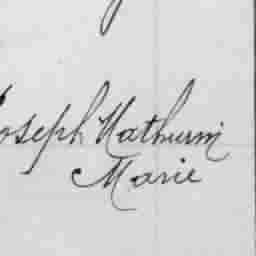 Joseph Mathurin
Marie